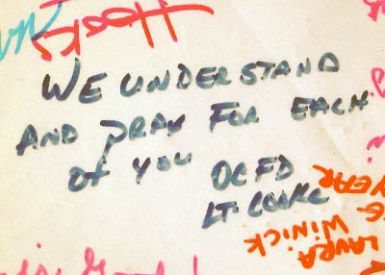 WE UNDERSTAND
AND PRAY FOR EACH
OF YOU OCFD
LT. COOKE
LAURA
WINICK
YEAR